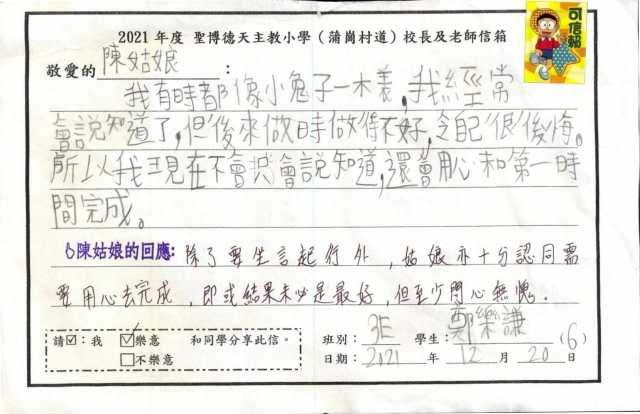 2021年度 聖博德天主教小學（蒲崗村道）校長及老師信箱
可信貼
敬愛的陳姑娘：
我有時都像小兔子一木羨,我經常
會說知道了,但後來做時做得不好,令自己很後悔。
所以我現在不會只會說知道,還會用心和第一時
間完成。
陳姑娘的回應：除了要坐言起行外，姑娘亦十分認同需
要用心去完成，即或結果未必是最好，但至少問心無愧.
請☑：我 ☑樂意 和同學分享此信。
□不樂意
班別：3E 學生：鄭樂謙 (6)
日期：2021 年 12 月 20 日